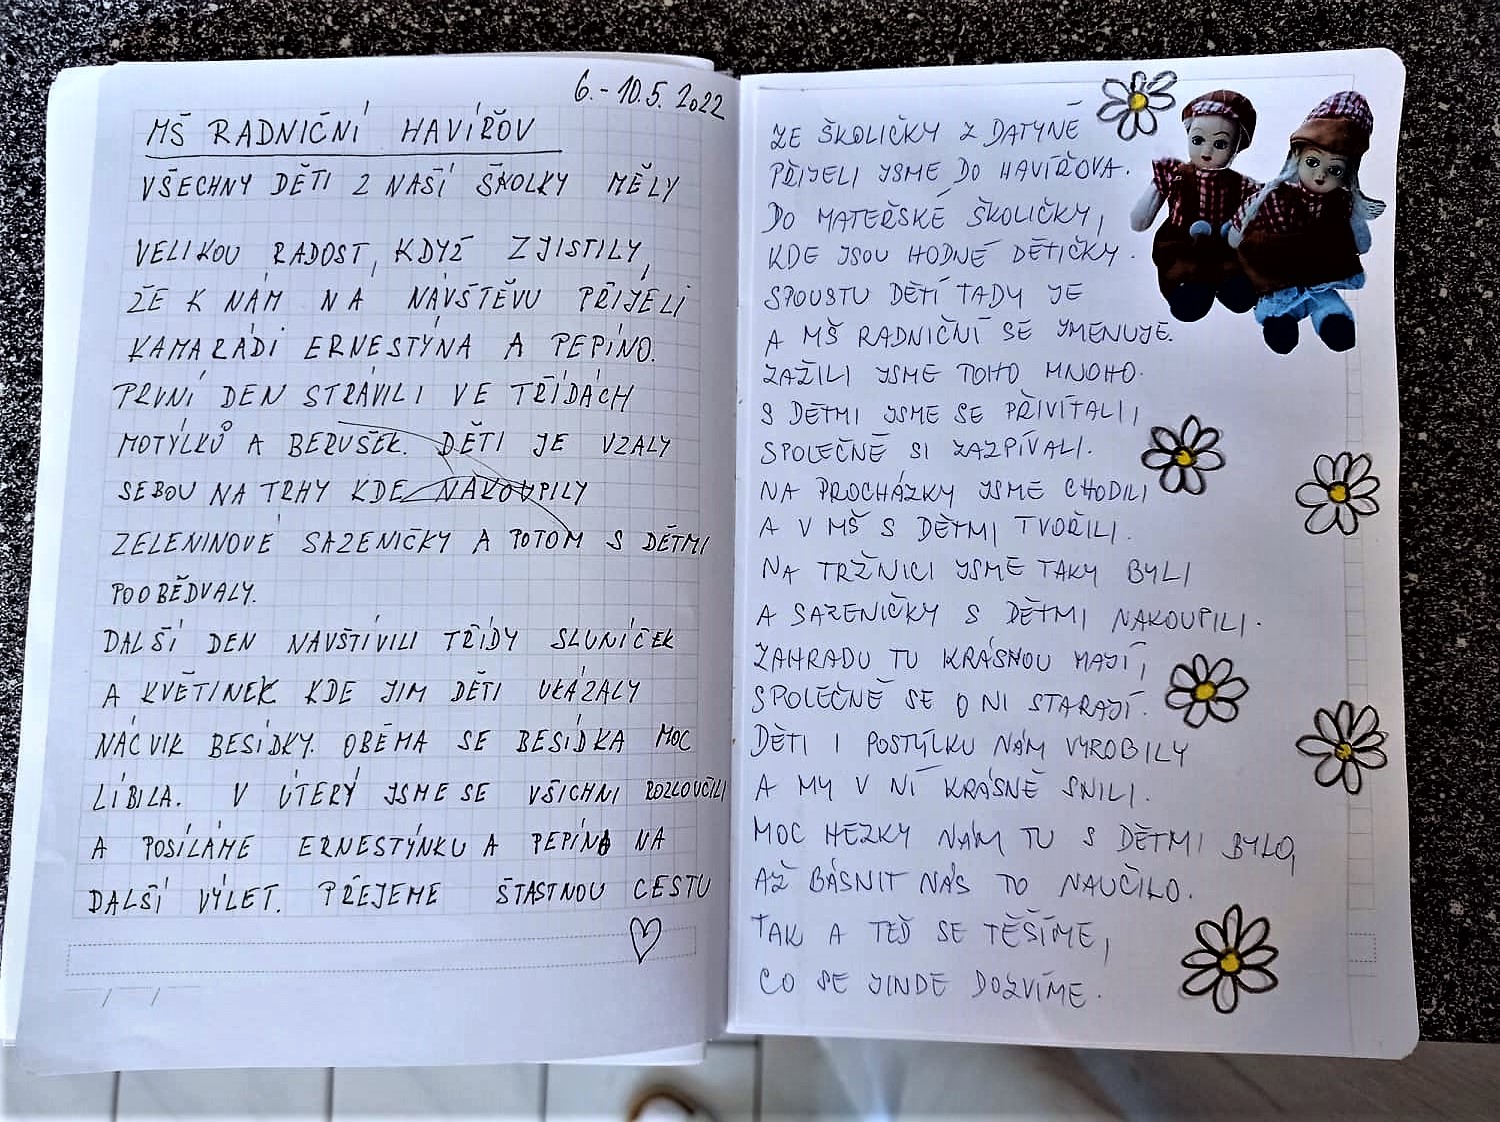 6.-10.5. 2022
MŠ RADNIČNÍ HAVÍŘOV
VŠECHNY DĚTI Z NAŠÍ ŠKOLKY MĚLY
VELIKOU RADOST, KDYŽ ZJISTILY,
ŽE K NÁM NA NÁVŠTĚVU PŘIJELI
KAMARÁDI ERNESTÝNA A PEPÍNO.
PRVNÍ DEN STRÁVILI VE TŘÍDÁCH
MOTÝLKŮ A BERUŠEK. DĚTI JE VZALY
SEBOU NA TRHY KDE NAKOUPILY
ZELENINOVÉ SAZENIČKY A POTOM S DĚTMI
POOBĚDVALY.
DALŠÍ DEN NAVŠTÍVILI TŘÍDY SLUNÍČEK
A KVĚTINEK KDE JIM DĚTI UKÁZALY
NÁCVIK BESÍDKY. OBĚMA SE BESÍDKA MOC
LÍBILA. V ÚTERÝ JSME SE VŠICHNI ROZLOUČILI
A POSÍLÁME ERNESTÝNKU A PEPÍNA NA
DALŠÍ VÝLET. PŘEJEME ŠTASTNOU CESTU
ZE ŠKOLIČKY Z DATYNĚ
PŘIJELI JSME DO HAVÍŘOVA.
DO MATEŘSKÉ ŠKOLIČKY,
KDE JSOU HODNÉ DĚTIČKY.
SPOUSTU DĚTÍ TADY JE
A MŠ RADNIČNÍ SE JMENUJE.
ZAŽILI JSME TOHO MNOHO.
S DĚTMI JSME SE PŘIVÍTALI,
SPOLEČNĚ SI ZAZPÍVALI.
NA PROCHÁZKY JSME CHODILI
A V MŠ S DĚTMI TVOŘILI.
NA TRŽNICI JSME TAKY BYLI
A SAZENIČKY S DĚTMI NAKOUPILI.
ZAHRADU TU KRÁSNOU MAJÍ,
SPOLEČNĚ SE O NI STARAJÍ.
DĚTI I POSTÝLKU NÁM VYROBILY
A MY V NÍ KRÁSNĚ SNILI.
MOC HEZKY NÁM TU S DĚTMI BYLO,
AŽ BÁSNIT NÁS TO NAUČILO.
TAK A TEĎ SE TĚŠÍME,
CO SE JINDE DOZVÍME.